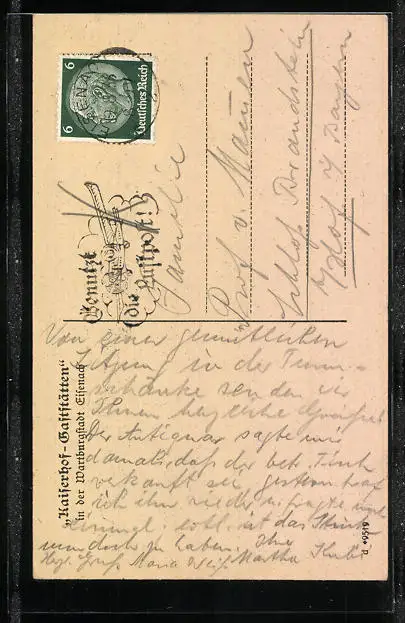 6 Deutsches Reich 6
EISENACH
Benutzt
die Luftpost!
Familie
Prof. v.
in
Schloß Brandstein
Hof / Bayern
„Kaiserhof-Gaststätten“
in der Wartburgstadt Eisenach
Von einer gemütlichen
Sitzung in der Turm-
schänke senden wir
Ihnen herzliche Grüße!
Der Antiquar sagte mir
damals, daß der betr. Tisch
verkauft sei, gestern traf
ich ihn wieder u. fragte
einmal. ist das
nun doch zu haben. Ihre
Herzl. Gruß Maria Martha